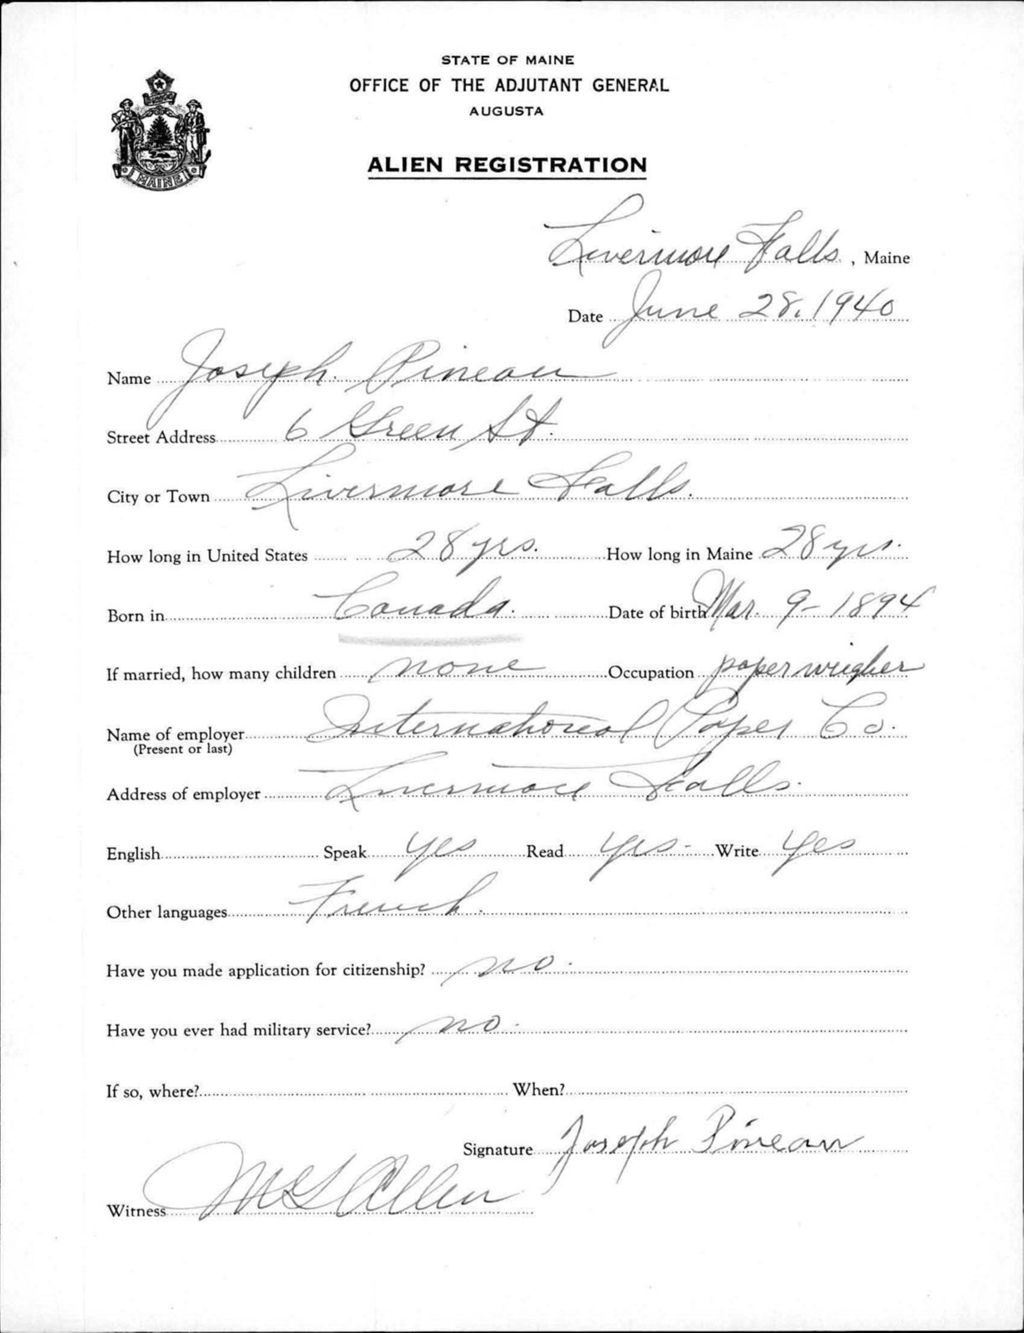 STATE OF MAINE
OFFICE OF THE ADJUTANT GENERAL
AUGUSTA
ALIEN REGISTRATION
MAINE
Livermore Falls, Maine
Date June 28, 1940
Name Joseph Pineau
Street Address 6 Green St.
City or Town Livermore Falls.
How long in United States 28 yrs. How long in Maine 28 yrs.
Born in Canada. Date of birth Mar. 9-1894
If married, how many children none Occupation paper weigher
Name of employer International Paper Co.
(Present or last)
Address of employer Livermore Falls.
English Speak yes Read yes- Write yes
Other languages French.
Have you made application for citizenship? no.
Have you ever had military service? no.
If so, where? When?
Signature Joseph Pineau
Witness Allen